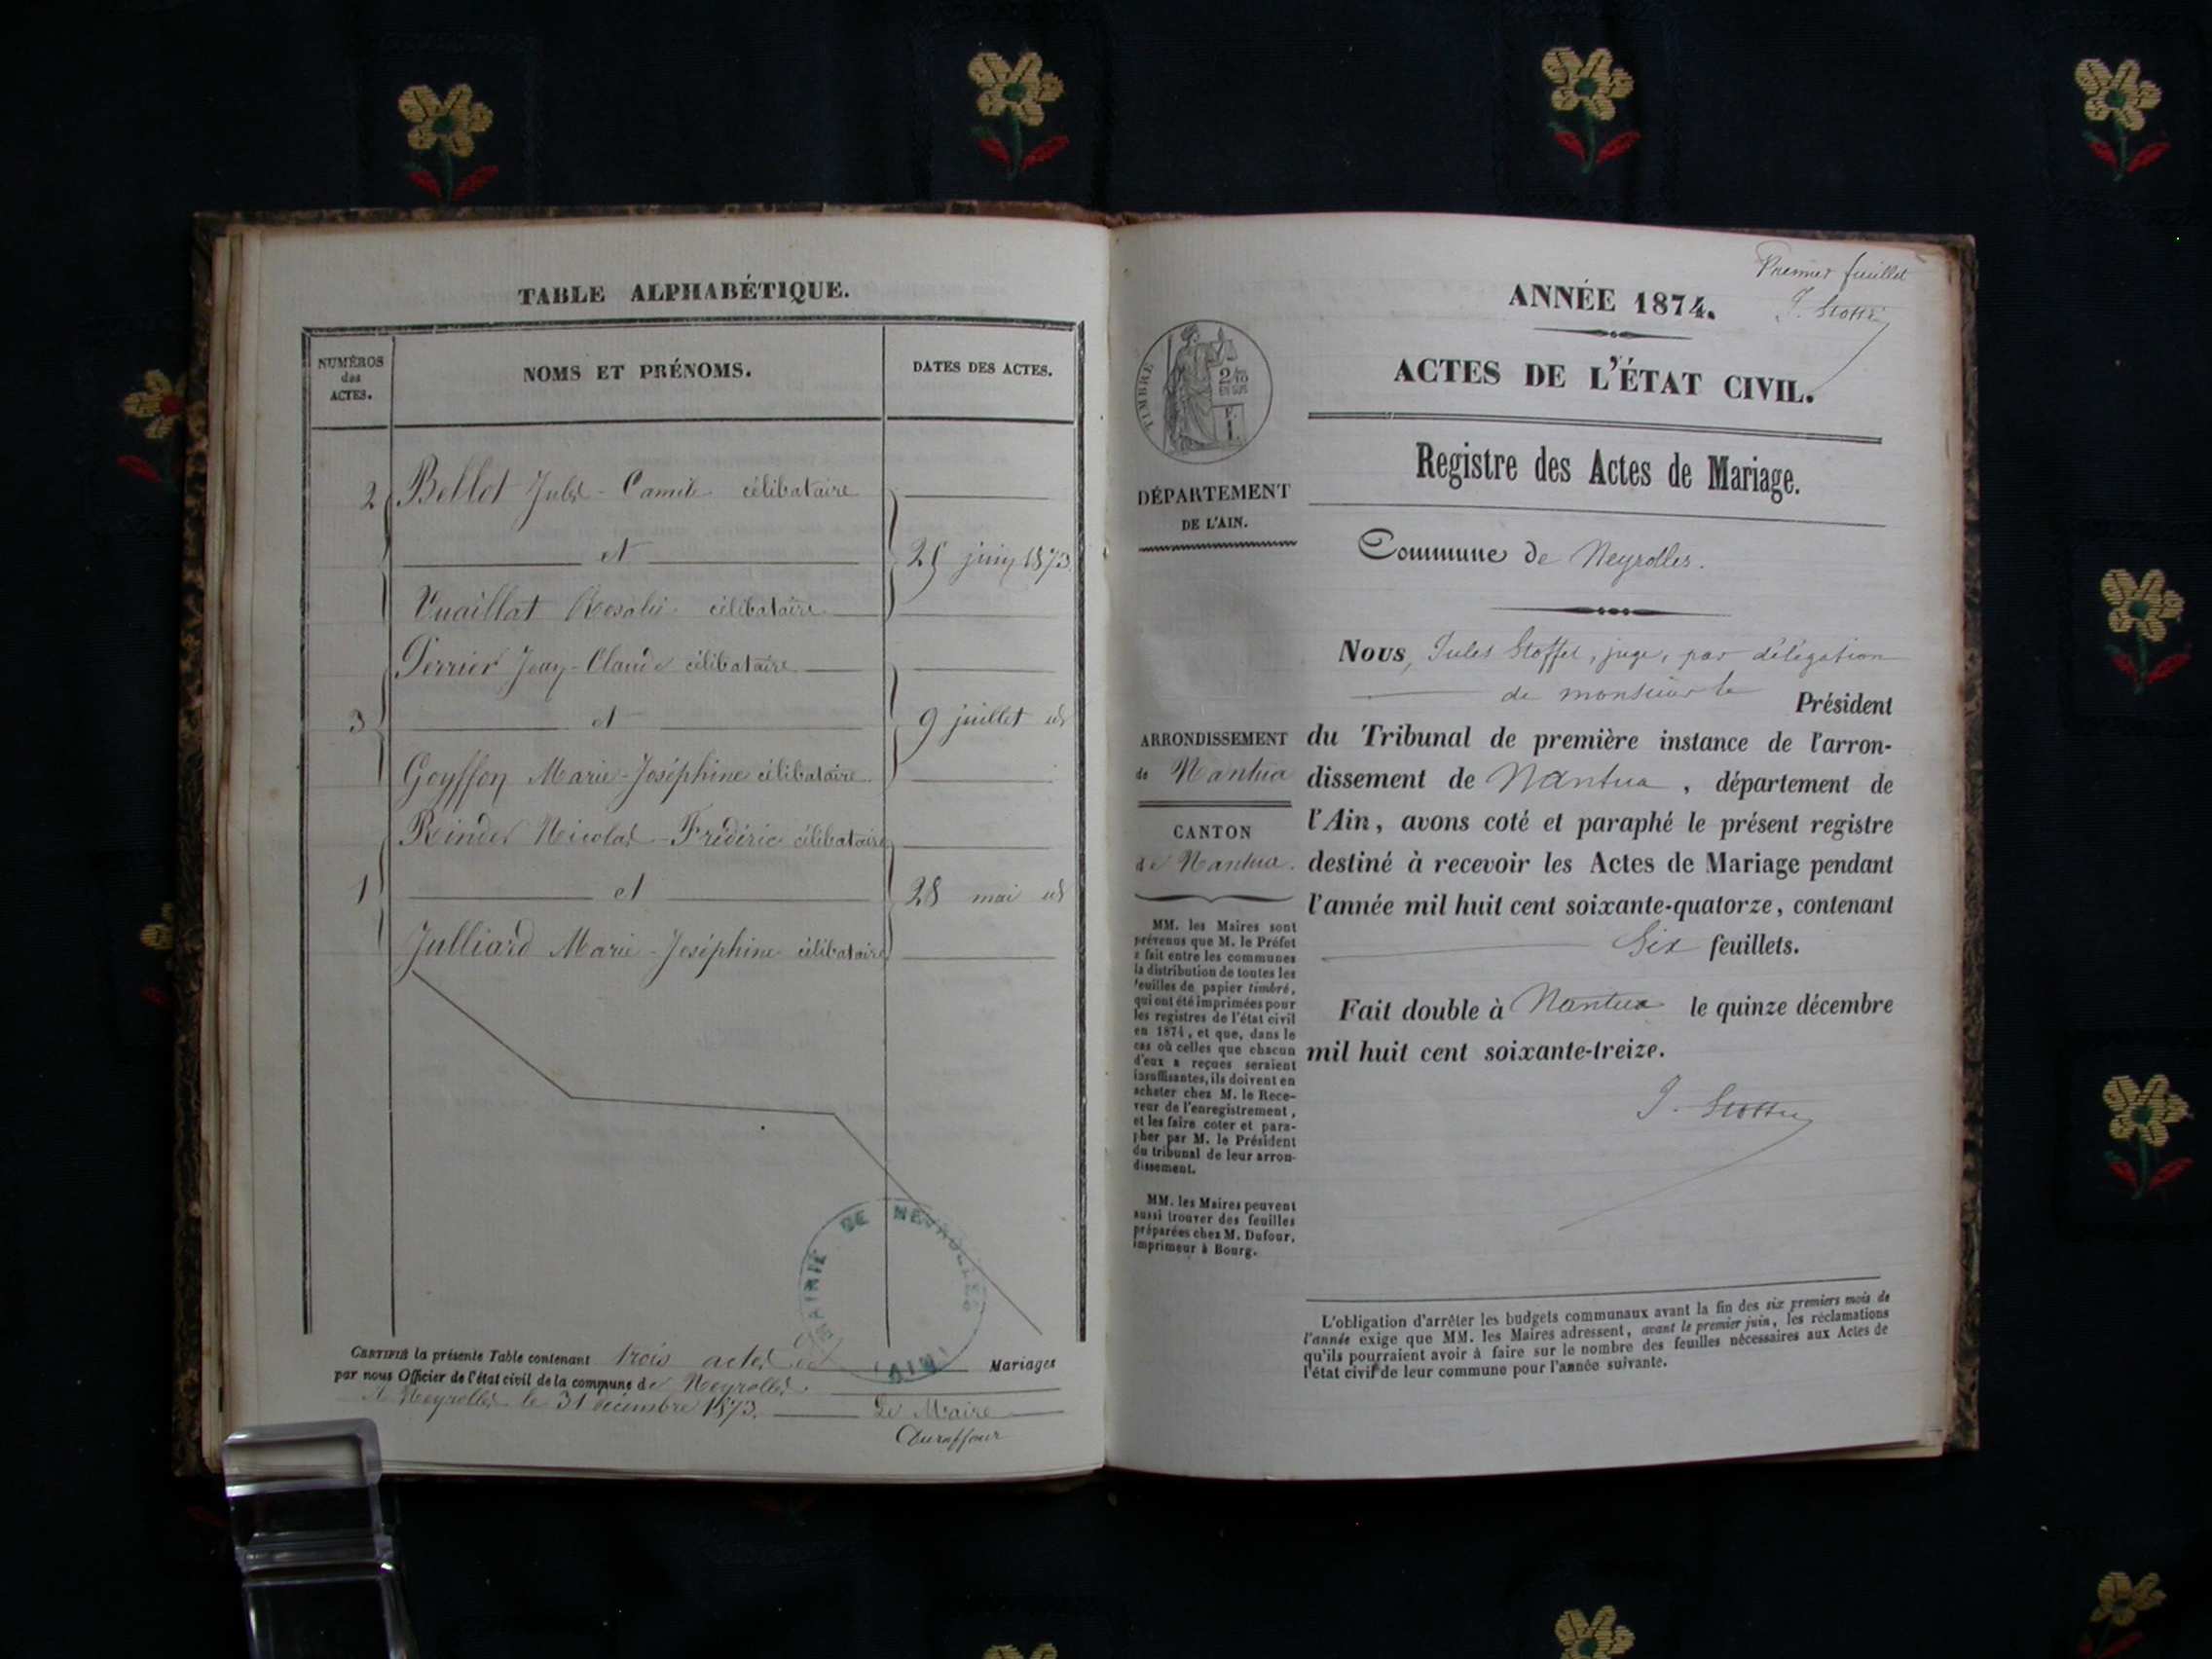 TABLE ALPHABÉTIQUE.
NUMÉROS
des
ACTES.
NOMS ET PRÉNOMS.
DATES DES ACTES.
2 Bellot Jules - Camile célibataire
et
juin 1873
Vuaillat Rosalie célibataire
Perrier Jean-Claude célibataire
3 et 9 juillet id
Goyffon Marie-Joséphine célibataire
Rinder Nicolas-Frédéric célibataire
1 et 28 mai id
Julliard Marie-Joséphine célibataire
MAIRIE DE NEYROLLES
(AIN)
CERTIFIÉ la présente Table contenant trois actes de Mariages
par nous Officier de l'état civil de la commune de Neyrolles.
A Neyrolles le 31 décembre 1873. Le Maire
Duraffour
Premier feuillet
J. Stoffel
ANNÉE 1874.
ACTES DE L'ÉTAT CIVIL.
TIMBRE
2/10
EN SUS
Registre des Actes de Mariage.
DÉPARTEMENT
DE L'AIN.
Commune de Neyrolles.
Nous, Jules Stoffel, juge, par délégation
de monsieur le Président
du Tribunal de première instance de l'arron-
dissement de Nantua, département de
l'Ain, avons coté et paraphé le présent registre
destiné à recevoir les Actes de Mariage pendant
l'année mil huit cent soixante-quatorze, contenant
Six feuillets.
Fait double à Nantua le quinze décembre
mil huit cent soixante-treize.
J. Stoffel
ARRONDISSEMENT
de Nantua
CANTON
de Nantua.
MM. les Maires sont
prévenus que M. le Préfet
a fait entre les communes
la distribution de toutes les
feuilles de papier timbré,
qui ont été imprimées pour
les registres de l'état civil
en 1874, et que, dans le
cas où celles que chacun
d'eux a reçues seraient
insuffisantes, ils doivent en
acheter chez M. le Rece-
veur de l'enregistrement,
et les faire coter et para-
pher par M. le Président
du tribunal de leur arron-
dissement.
MM. les Maires peuvent
aussi trouver des feuilles
préparées chez M. Dufour,
imprimeur à Bourg.
L'obligation d'arrêter les budgets communaux avant la fin des six premiers mois de
l'année exige que MM. les Maires adressent, avant le premier juin, les réclamations
qu'ils pourraient avoir à faire sur le nombre des feuilles nécessaires aux Actes de
l'état civil de leur commune pour l'année suivante.